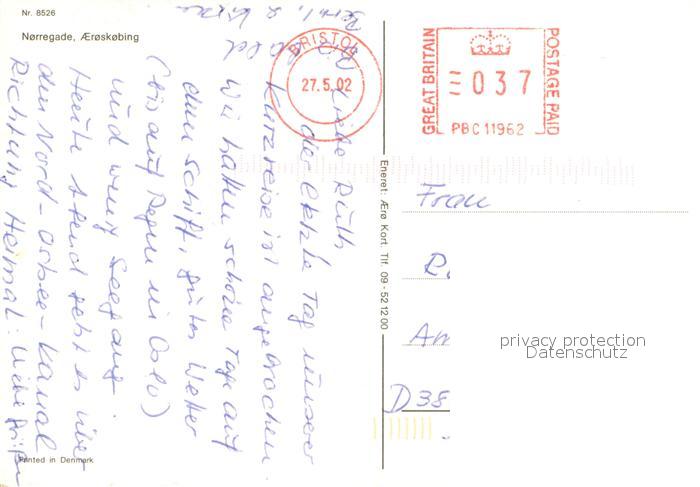 Nr. 8526
Nørregade, Ærøskøbing
BRISTOL
27.5.02
GREAT BRITAIN
037
PBC 11962
POSTAGE PAID
Liebe Ruth
die letzte Tag unserer
Kurzreise ist angebrochen.
Wir hatten schöne Tage auf
dem Schiff, gutes Wetter
(bis auf Regen in Oslo)
und wenig Seegang.
Heute Abend geht es über
den Nord-Ostsee-Kanal
Richtung Heimat. Liebe Grüße
Eneret: Ærø Kort. Tlf. 09 - 52 12 00
Frau
R.
Am
D 38
privacy protection
Datenschutz
Printed in Denmark